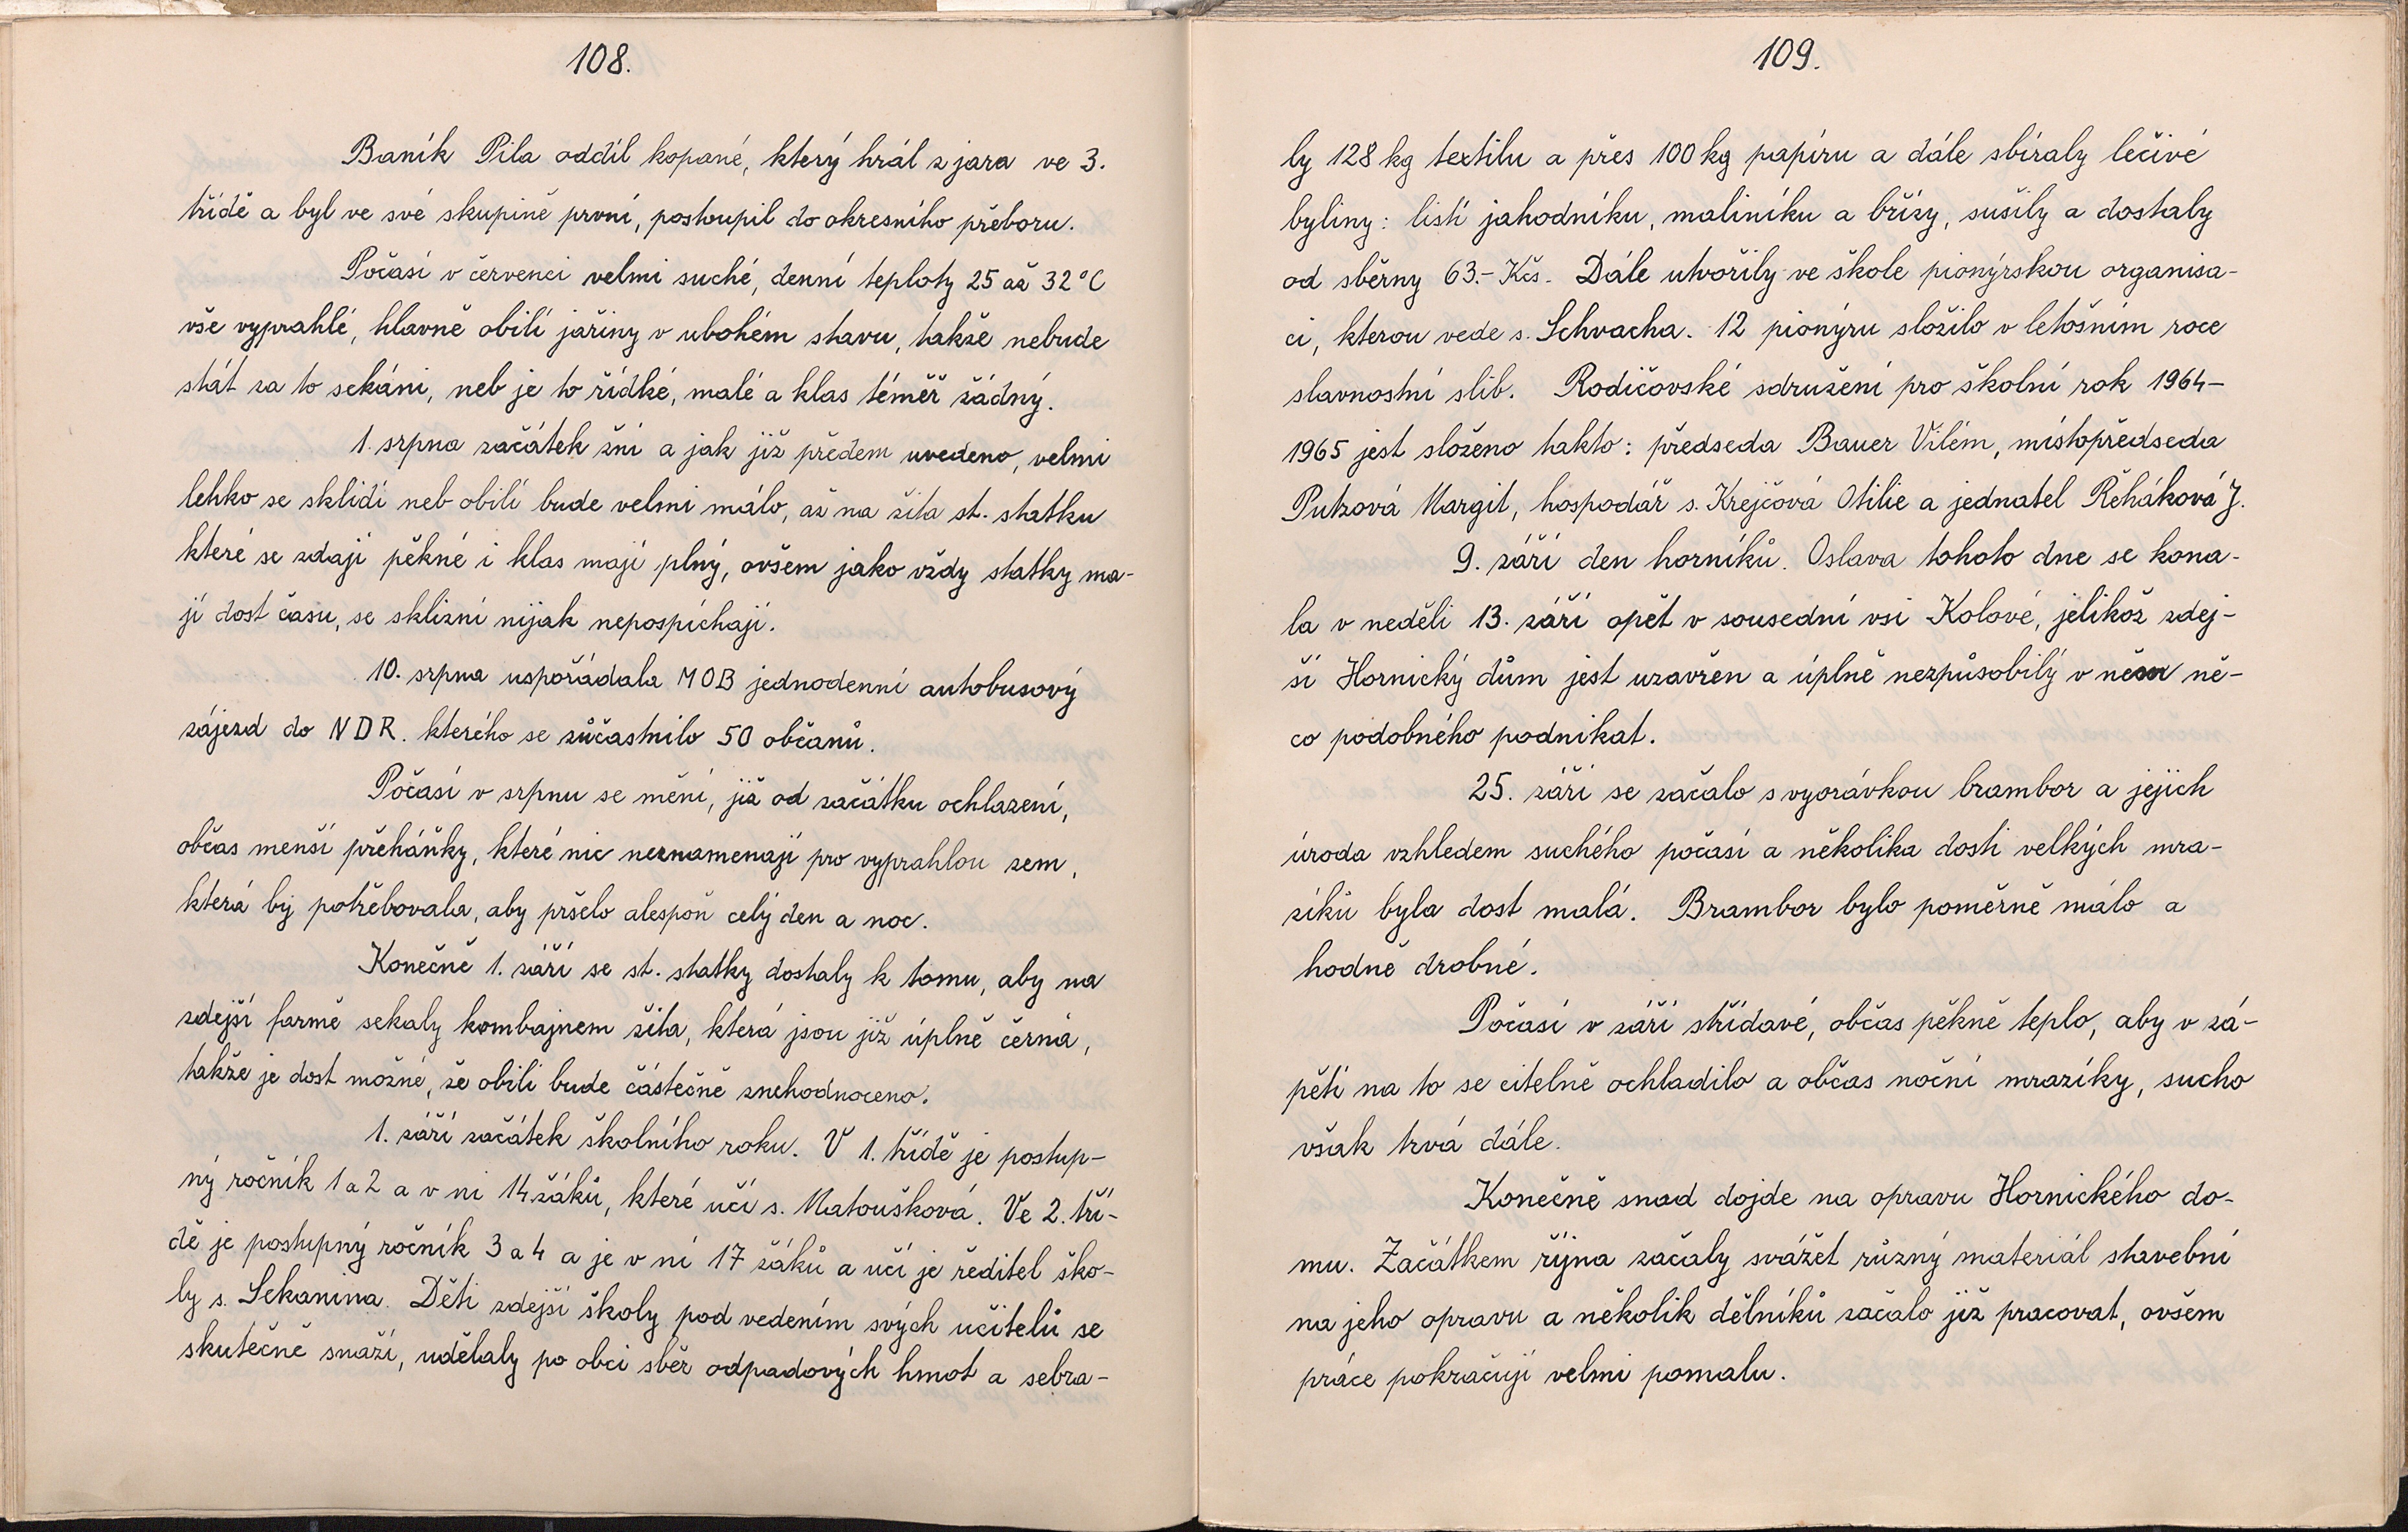 108.
Baník Pila oddíl kopané, který hrál z jara ve 3.
třídě a byl ve své skupině první, postoupil do okresního přeboru.
Počasí v červenci velmi suché, denní teploty 25 až 32°C
vše vyprahlé, hlavně obilí jařiny v ubohém stavu, takže nebude
stát za to sekáni, neb je to řídké, malé a klas téměř žádný.
1. srpna začátek žní a jak již předem uvedeno, velmi
lehko se sklidí neb obilí bude velmi málo, až na žita st. statku
které se zdají pěkné i klas mají plný, ovšem jako vždy statky ma-
jí dost času, se sklizní nijak nepospíchají.
10. srpna uspořádala MOB jednodenní autobusový
zájezd do NDR. kterého se zůčastnilo 50 občanů.
Počasí v srpnu se mění, již od začátku ochlazení,
občas menší přeháňky, které nic neznamenají pro vyprahlou zem,
která by potřebovala, aby pršelo alespoň celý den a noc.
Konečně 1. září se st. statky dostaly k tomu, aby na
zdejší farmě sekaly kombajnem žita, která jsou již úplně černá,
takže je dost možné, že obilí bude částečně znehodnoceno.
1. září začátek školního roku. V 1. třídě je postup-
ný ročník 1 a 2 a v ni 14 žáků, které učí s. Matoušková. Ve 2. tří-
dě je postupný ročník 3 a 4 a je v ní 17 žáků a učí je ředitel ško-
ly s. Sekanina. Děti zdejší školy pod vedením svých učitelů se
skutečně snaží, udělaly po obci sběr odpadových hmot a sebra-
109.
ly 128 kg textilu a přes 100 kg papíru a dále sbíraly léčivé
byliny: listí jahodníku, maliníku a břízy, sušily a dostaly
od sběrny 63.- Kčs. Dále utvořily ve škole pionýrskou organisa-
ci, kterou vede s. Schvacha. 12 pionýru složilo v letošním roce
slavnostní slib. Rodičovské sdružení pro školní rok 1964-
1965 jest složeno takto: předseda Bauer Vilém, místopředseda
Putzová Margit, hospodář s. Krejčová Otilie a jednatel Řeháková J.
9. září den horníků. Oslava tohoto dne se kona-
la v neděli 13. září opět v sousední vsi Kolové, jelikož zdej-
ší Hornický dům jest uzavřen a úplně nezpůsobilý v něm ně-
co podobného podnikat.
25. září se začalo s vyorávkou brambor a jejich
úroda vzhledem suchého počasí a několika dosti velkých mra-
zíků byla dost malá. Brambor bylo poměrně málo a
hodně drobné.
Počasí v září střídavé, občas pěkně teplo, aby v zá-
pětí na to se citelně ochladilo a občas noční mrazíky, sucho
však trvá dále.
Konečně snad dojde na opravu Hornického do-
mu. Začátkem října začaly svážet různý materiál stavební
na jeho opravu a několik dělníků začalo již pracovat, ovšem
práce pokračují velmi pomalu.